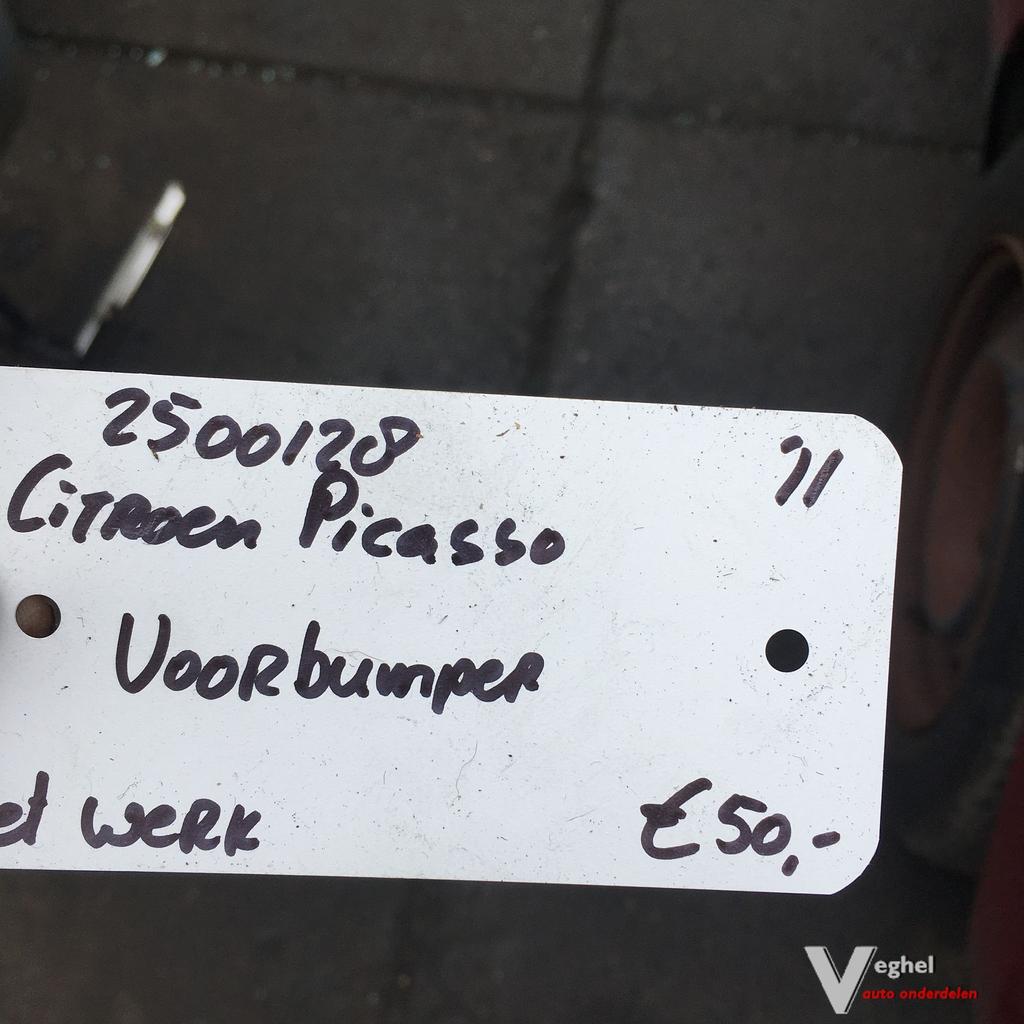 2500128
Citroen Picasso
Voorbumper
werk
€50,-
Veghel
auto onderdelen